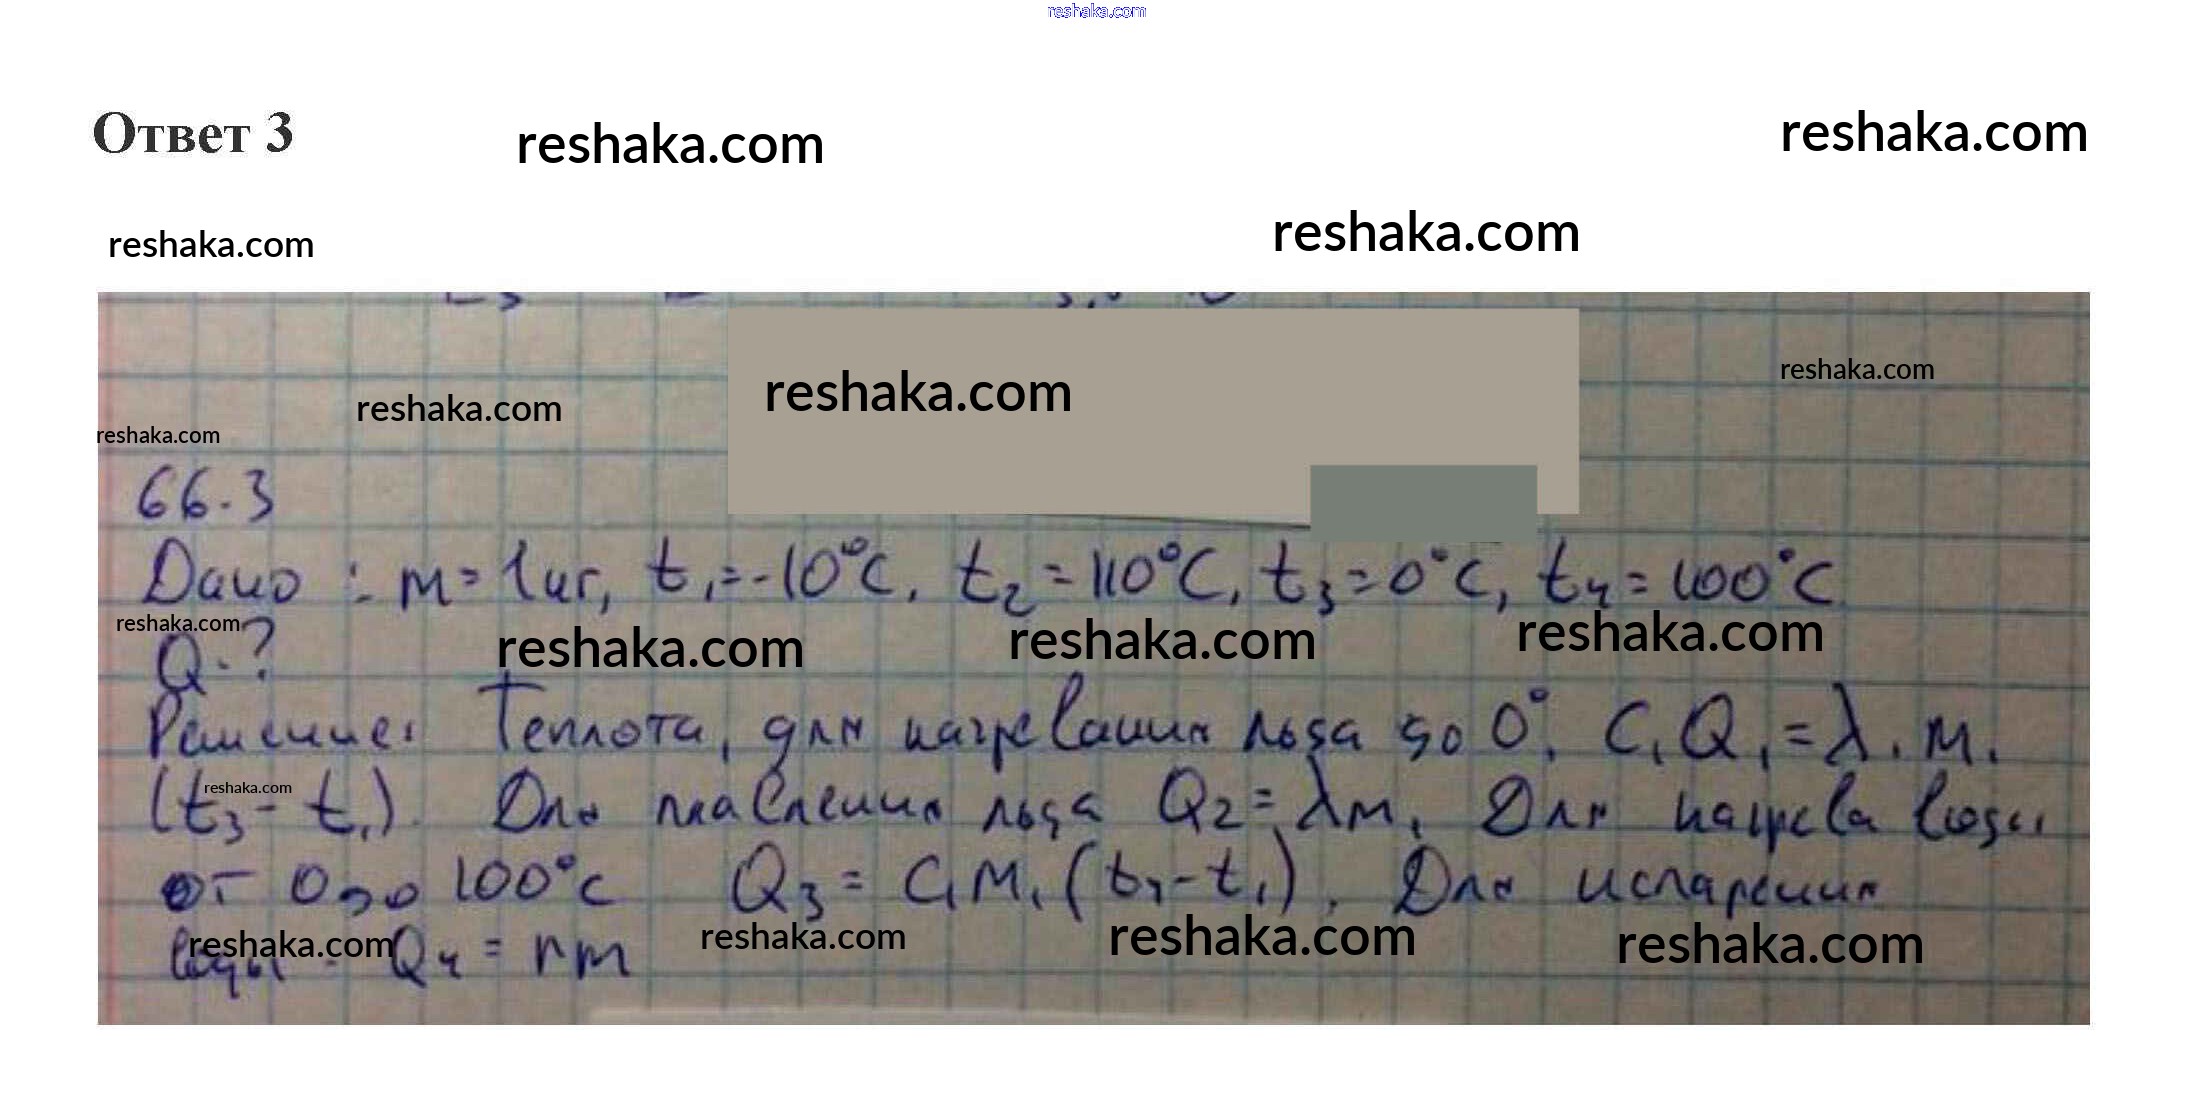 reshaka.com
Ответ 3
reshaka.com
reshaka.com
reshaka.com
reshaka.com
reshaka.com
reshaka.com
reshaka.com
reshaka.com
66.3
Дано: m=1кг, t₁=-10°C, t₂=110°C, t₃=0°C, t₄=100°C
reshaka.com
reshaka.com
reshaka.com
reshaka.com
Q-?
Решение: Теплота, для нагревания льда до 0°, C₁ Q₁=λ₁ m₁
(t₃ - t₁). Для плавления льда Q₂=λm, Для нагрева воды
reshaka.com
от 0 до 100°C Q₃ = C₁m₁(t₄-t₁). Для испарения
воды - Q₄ = rm
reshaka.com
reshaka.com
reshaka.com
reshaka.com